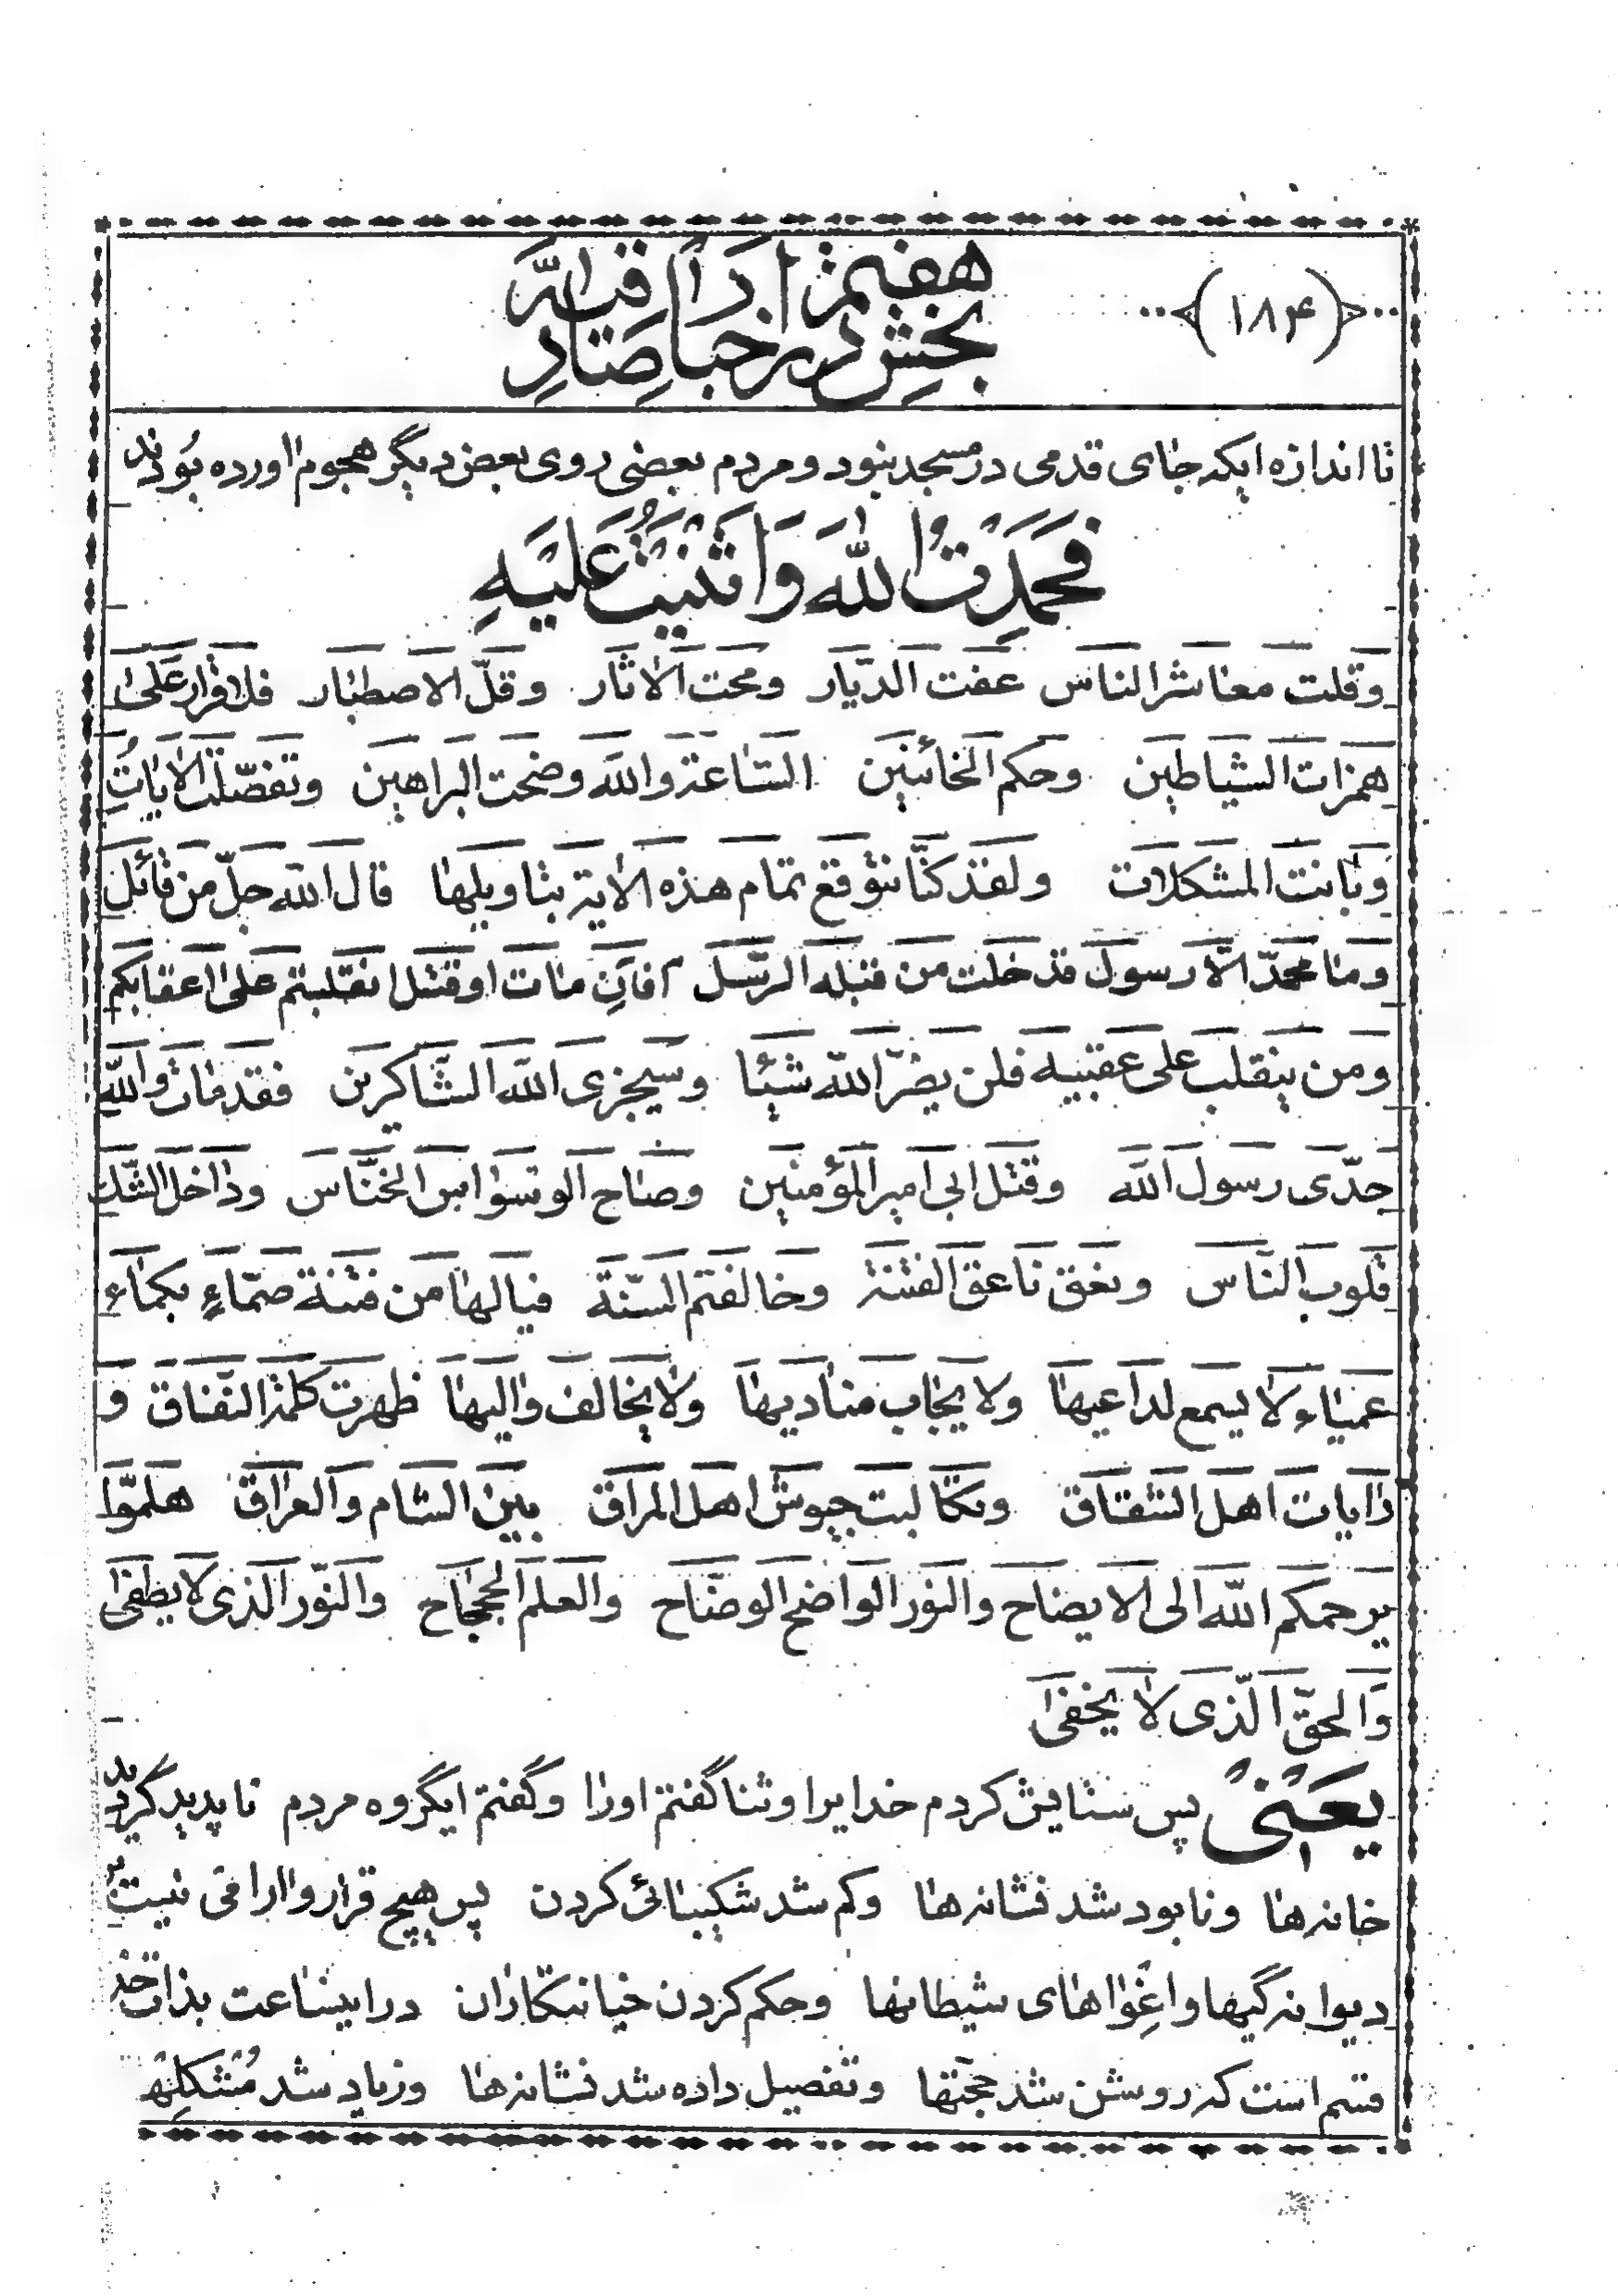 (۱۸۴)
بخش هفتم در اخبار صادقیه
تا اندازه ایکه جای قدمی در مسجد نبود و مردم بعضی روی بعض دیگر هجوم اورده بودند
فَحَمِدْتُ اللّٰهَ وَاَثْنَیْتُ عَلَیْهِ
وقلت معاشر الناس عفت الدّیار ومحت الاٰثار وقلّ الاصطبار فلا قرار علیٰ
همزات الشیاطین وحکم الخائنین السّاعة واللّه وضحت البراهین وتفصّلت الاٰیاتُ
وبانت المشکلات ولقد کنّا نتوقع تمام هذه الاٰیة بتاویلها قال اللّه جلّ من قائل
وما محمّد الّا رسول قد خلت من قبله الرّسل افاِن مات او قتل انقلبتم علیٰ اعقابکم
ومن ینقلب علی عقبیه فلن یضرّ اللّه شیئا وسیجزی اللّه الشّاکرین فقد مات واللّه
جدّی رسول اللّه وقتل ابی امیر المؤمنین وصاح الوسواس الخنّاس وداخل الشّک
قلوب النّاس ونعق ناعق الفتنة وخالفتم السّنّة فیالها من فتنة صمّاءٍ بکماءِ
عمیاء ولا یسمع لداعیها ولا یجاب منادیها ولا یخالف والیها ظهرت کلمة النّفاق و
رایات اهل الشقاق وتکالبت جیوش اهل المراق بین الشام والعراق هلمّوا
یرحمکم اللّه الی الایضاح والنور الواضح الوضّاح والعلم الجحجاح والنّور الذی لا یطفیٰ
والحقّ الّذی لا یخفیٰ
یَعنی پس ستایش کردم خدایرا وثنا گفتم اورا وگفتم ایگروه مردم ناپدید کردند
خانه‌ها ونابود شد نشانه‌ها وکم شد شکیبائی کردن پس هیچ قرار و ارامی نیست بر
دیوانه گیها واغوا‌های شیطانها وحکم کردن خیانتکاران در اینساعت بذات خدا
قسم است که روشن شد حجّتها وتفصیل داده شد نشانه‌ها وزیاد شد مُشکلها